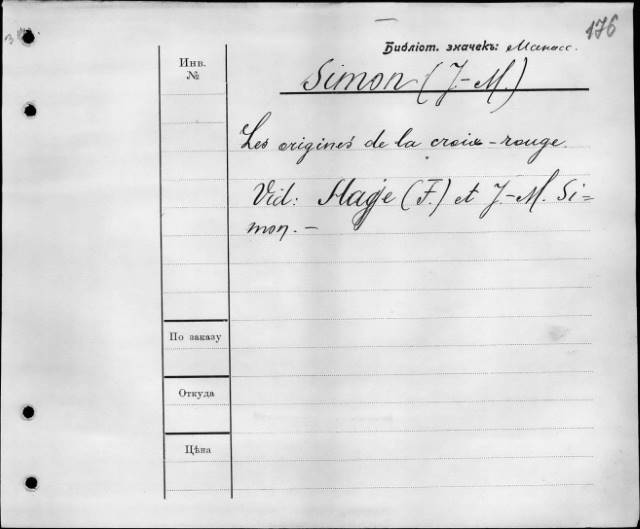 176
Библіот. значекъ: Манасс.
Инв.
№
Simon (J-M.)
Les origines de la croix-rouge.
Vid: Haye (F.) et J.-M. Si=
mon. —
По заказу
Откуда
Цѣна